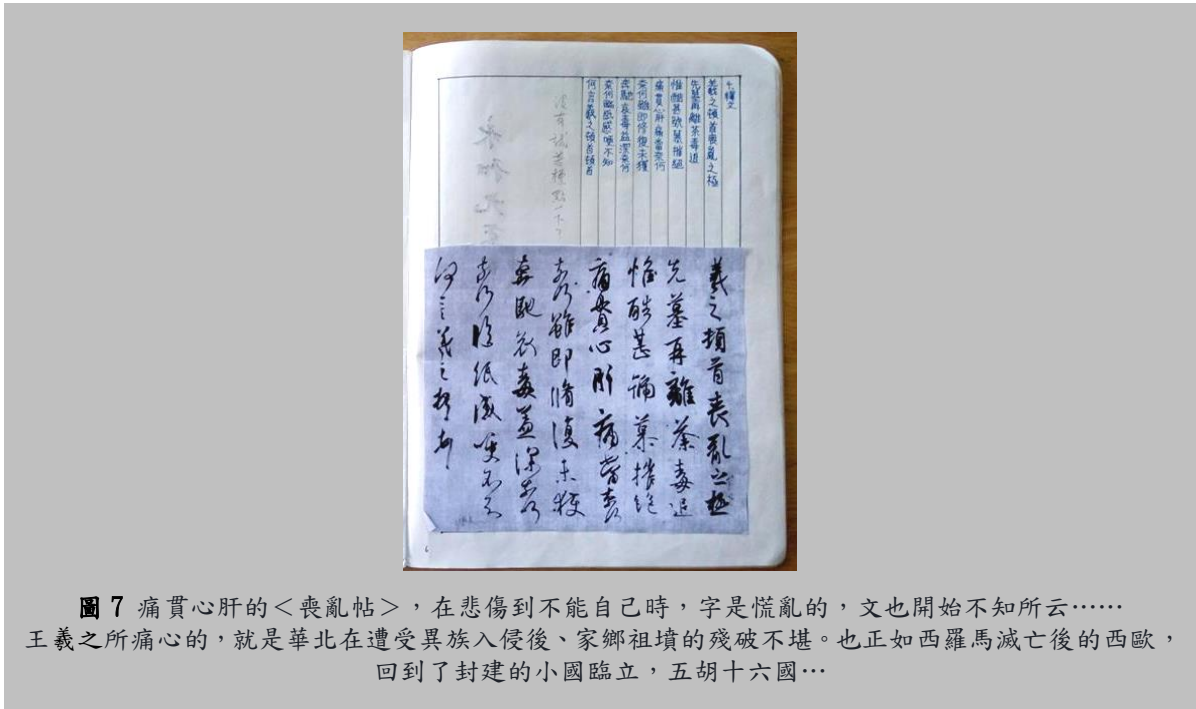 七釋文
羲之頓首喪亂之極
先墓再離荼毒追
惟酷甚號慕摧絕
痛貫心肝痛當奈何
奈何雖即修復未獲
奔馳哀毒益深奈何
奈何臨紙感哽不知
何言羲之頓首頓首
沒有試著標點一下？
羲之頓首喪亂之極
先墓再離荼毒追
惟酷甚號慕摧絕
痛貫心肝痛當奈何
奈何雖即脩復未獲
奔馳哀毒益深奈何
奈何臨紙感哽不知
何言羲之頓首頓首
6
圖 7 痛貫心肝的＜喪亂帖＞，在悲傷到不能自己時，字是慌亂的，文也開始不知所云……
王羲之所痛心的，就是華北在遭受異族入侵後、家鄉祖墳的殘破不堪。也正如西羅馬滅亡後的西歐，
回到了封建的小國臨立，五胡十六國…